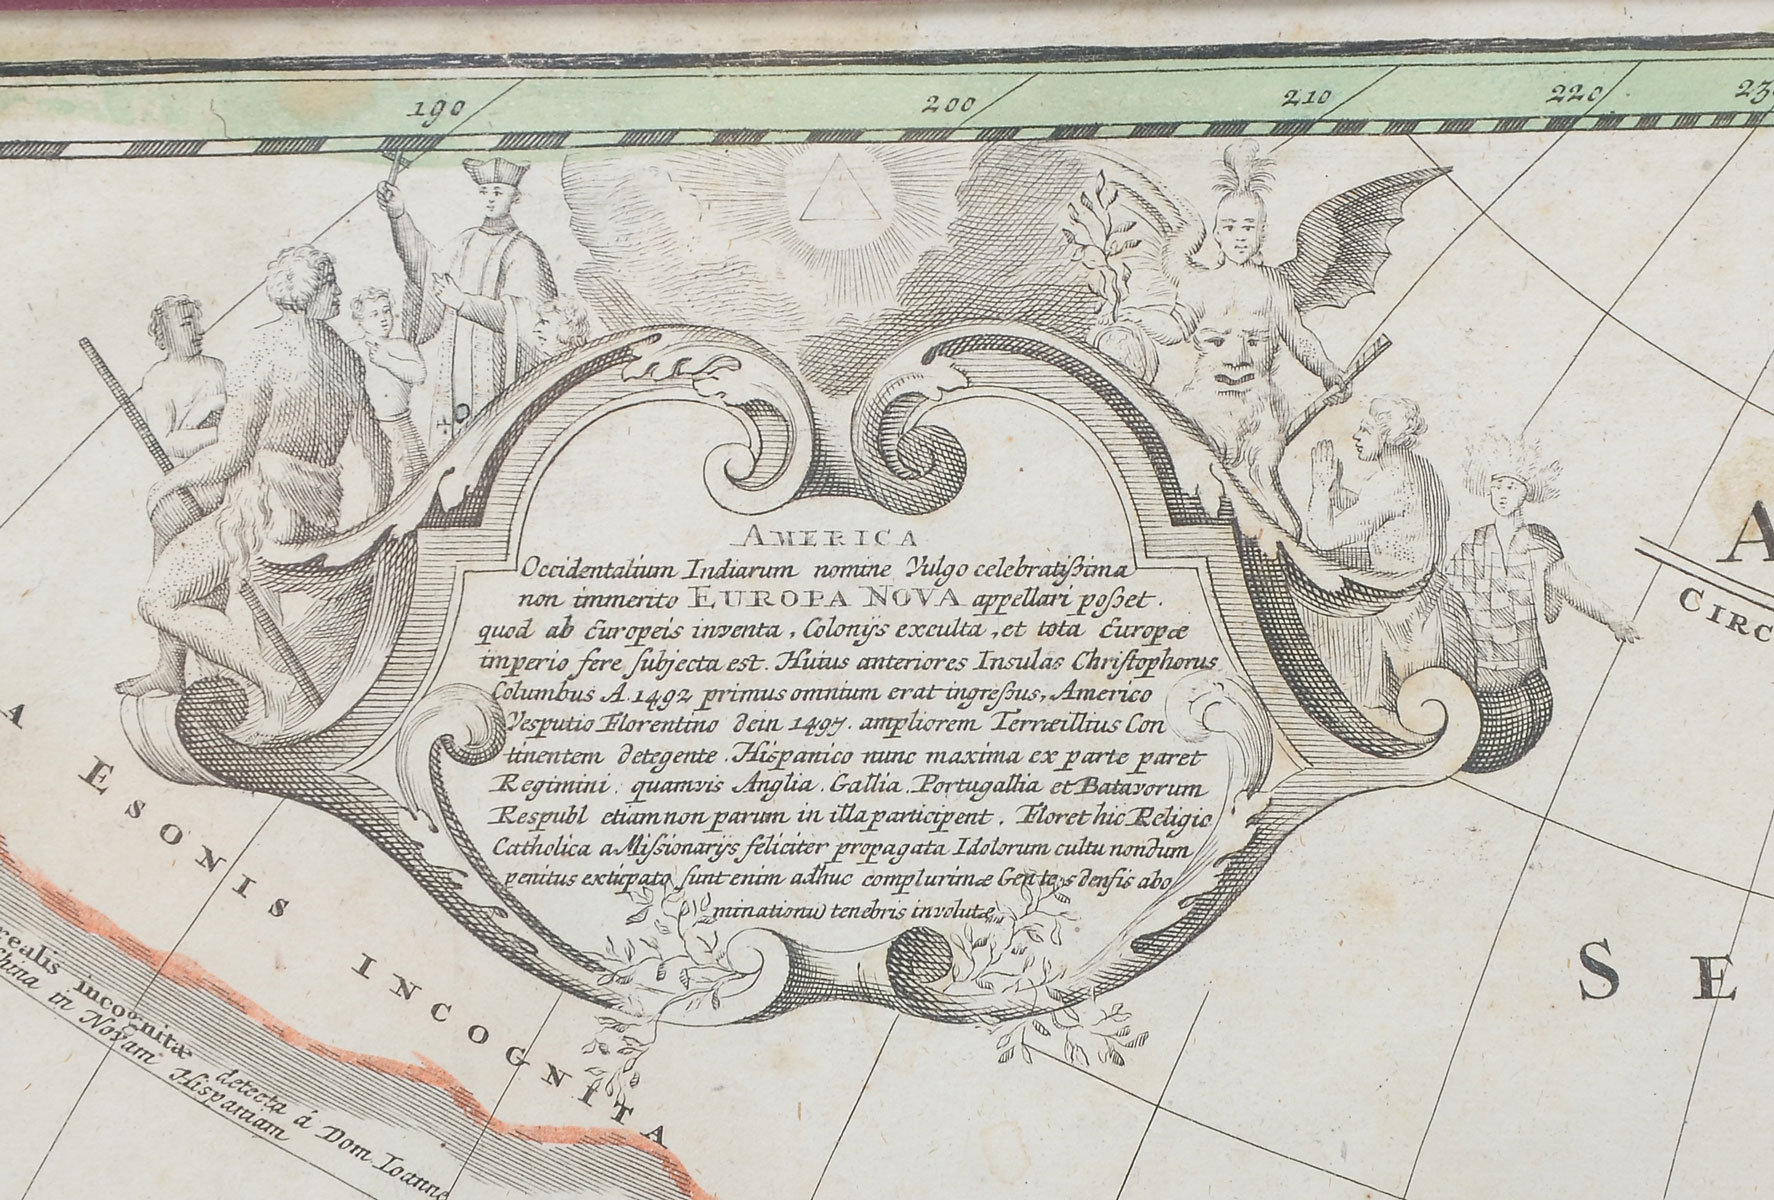 190 200 210 220 23
AMERICA
Occidentalium Indiarum nomine Vulgo celebratißima
non immerito EUROPA NOVA appellari poßet.
quod ab Europeis inventa, Colonijs exculta, et tota Europæ
imperio fere subjecta est. Huius anteriores Insulas Christophorus
Columbus A. 1492 primus omnium erat ingreßus, Americo
Vesputio Florentino dein 1497. ampliorem Terræ illius Con
tinentem detegente. Hispanico nunc maxima ex parte paret
Regimini, quamvis Anglia, Gallia, Portugallia et Batavorum
Respubl etiam non parum in illa participent. Floret hic Religio
Catholica a Mißionarijs feliciter propagata Idolorum cultu nondum
penitus extirpato sunt enim adhuc complurimæ Gentes densis abo
minationū tenebris involutæ
A
CIRC
S E
A ESONIS INCOGNITA
realis incognitæ detecta á Dom Ioanne
china in Novam Hispaniam